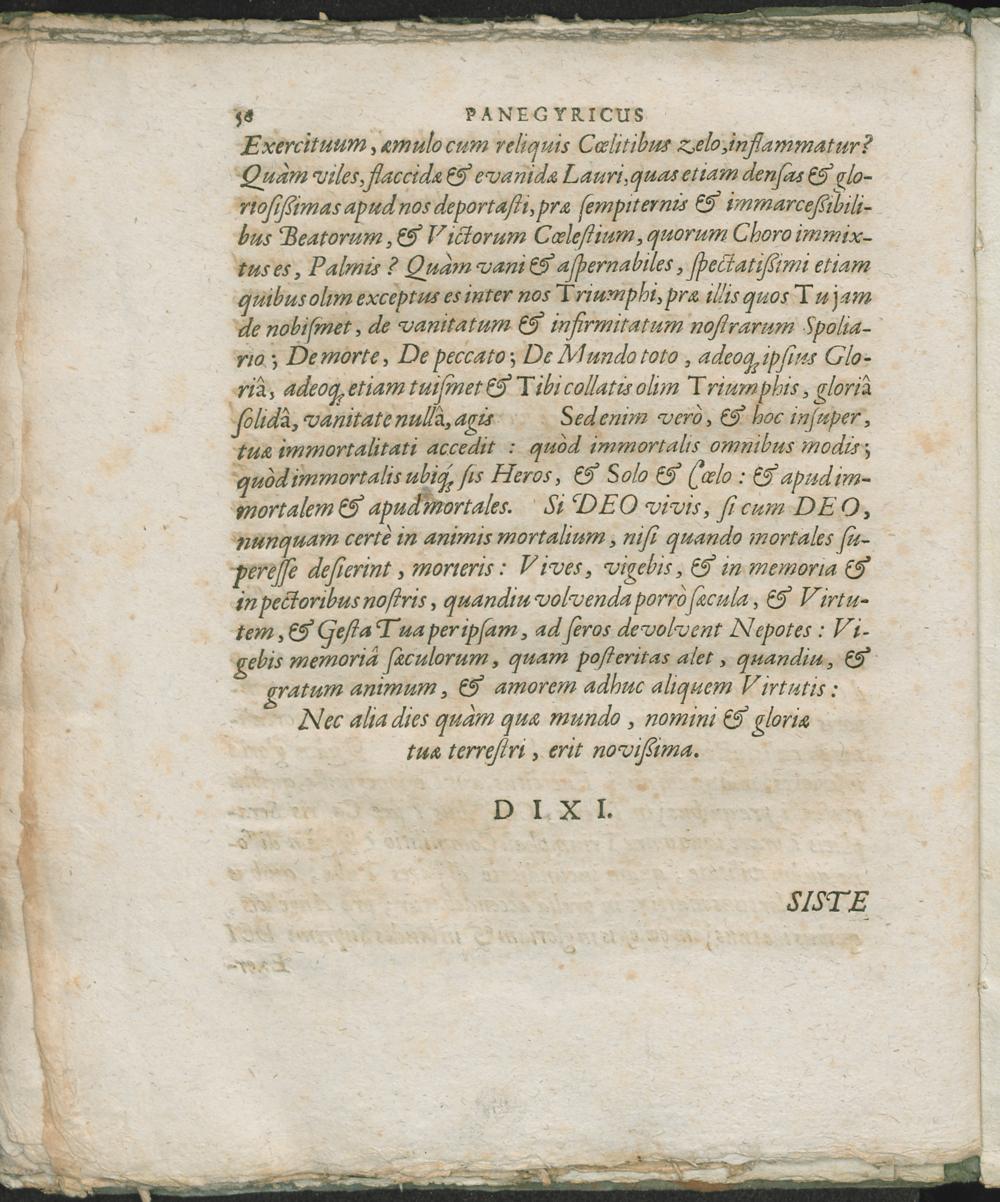 56 PANEGYRICUS
Exercituum, æmulo cum reliquis Cœlitibus zelo, inflammatur?
Quàm viles, flaccidæ & evanidæ Lauri, quas etiam denſas & glo-
rioſiſſimas apud nos deportaſti, præ ſempiternis & immarceſſibili-
bus Beatorum, & Victorum Cœleſtium, quorum Choro immix-
tus es, Palmis? Quàm vani & aſpernabiles, ſpectatiſſimi etiam
quibus olim exceptus es inter nos Triumphi, præ illis quos Tu jam
de nobiſmet, de vanitatum & infirmitatum noſtrarum Spolia-
rio; De morte, De peccato; De Mundo toto, adeoq; ipſius Glo-
riâ, adeoq; etiam tuiſmet & Tibi collatis olim Triumphis, gloriâ
ſolidâ, vanitate nullâ, agis Sed enim verò, & hoc inſuper,
tuæ immortalitati accedit : quòd immortalis omnibus modis;
quòd immortalis ubiq́; ſis Heros, & Solo & Cœlo : & apud im-
mortalem & apud mortales. Si DEO vivis, ſi cum DEO,
nunquam certè in animis mortalium, niſi quando mortales ſu-
pereſſe deſierint, morieris : Vives, vigebis, & in memoria &
in pectoribus noſtris, quandiu volvenda porrò ſæcula, & Virtu-
tem, & Geſta Tua per ipſam, ad ſeros devolvent Nepotes : Vi-
gebis memoriâ ſæculorum, quam poſteritas alet, quandiu, &
gratum animum, & amorem adhuc aliquem Virtutis :
Nec alia dies quàm quæ mundo, nomini & gloriæ
tuæ terreſtri, erit noviſſima.
DIXI.
SISTE